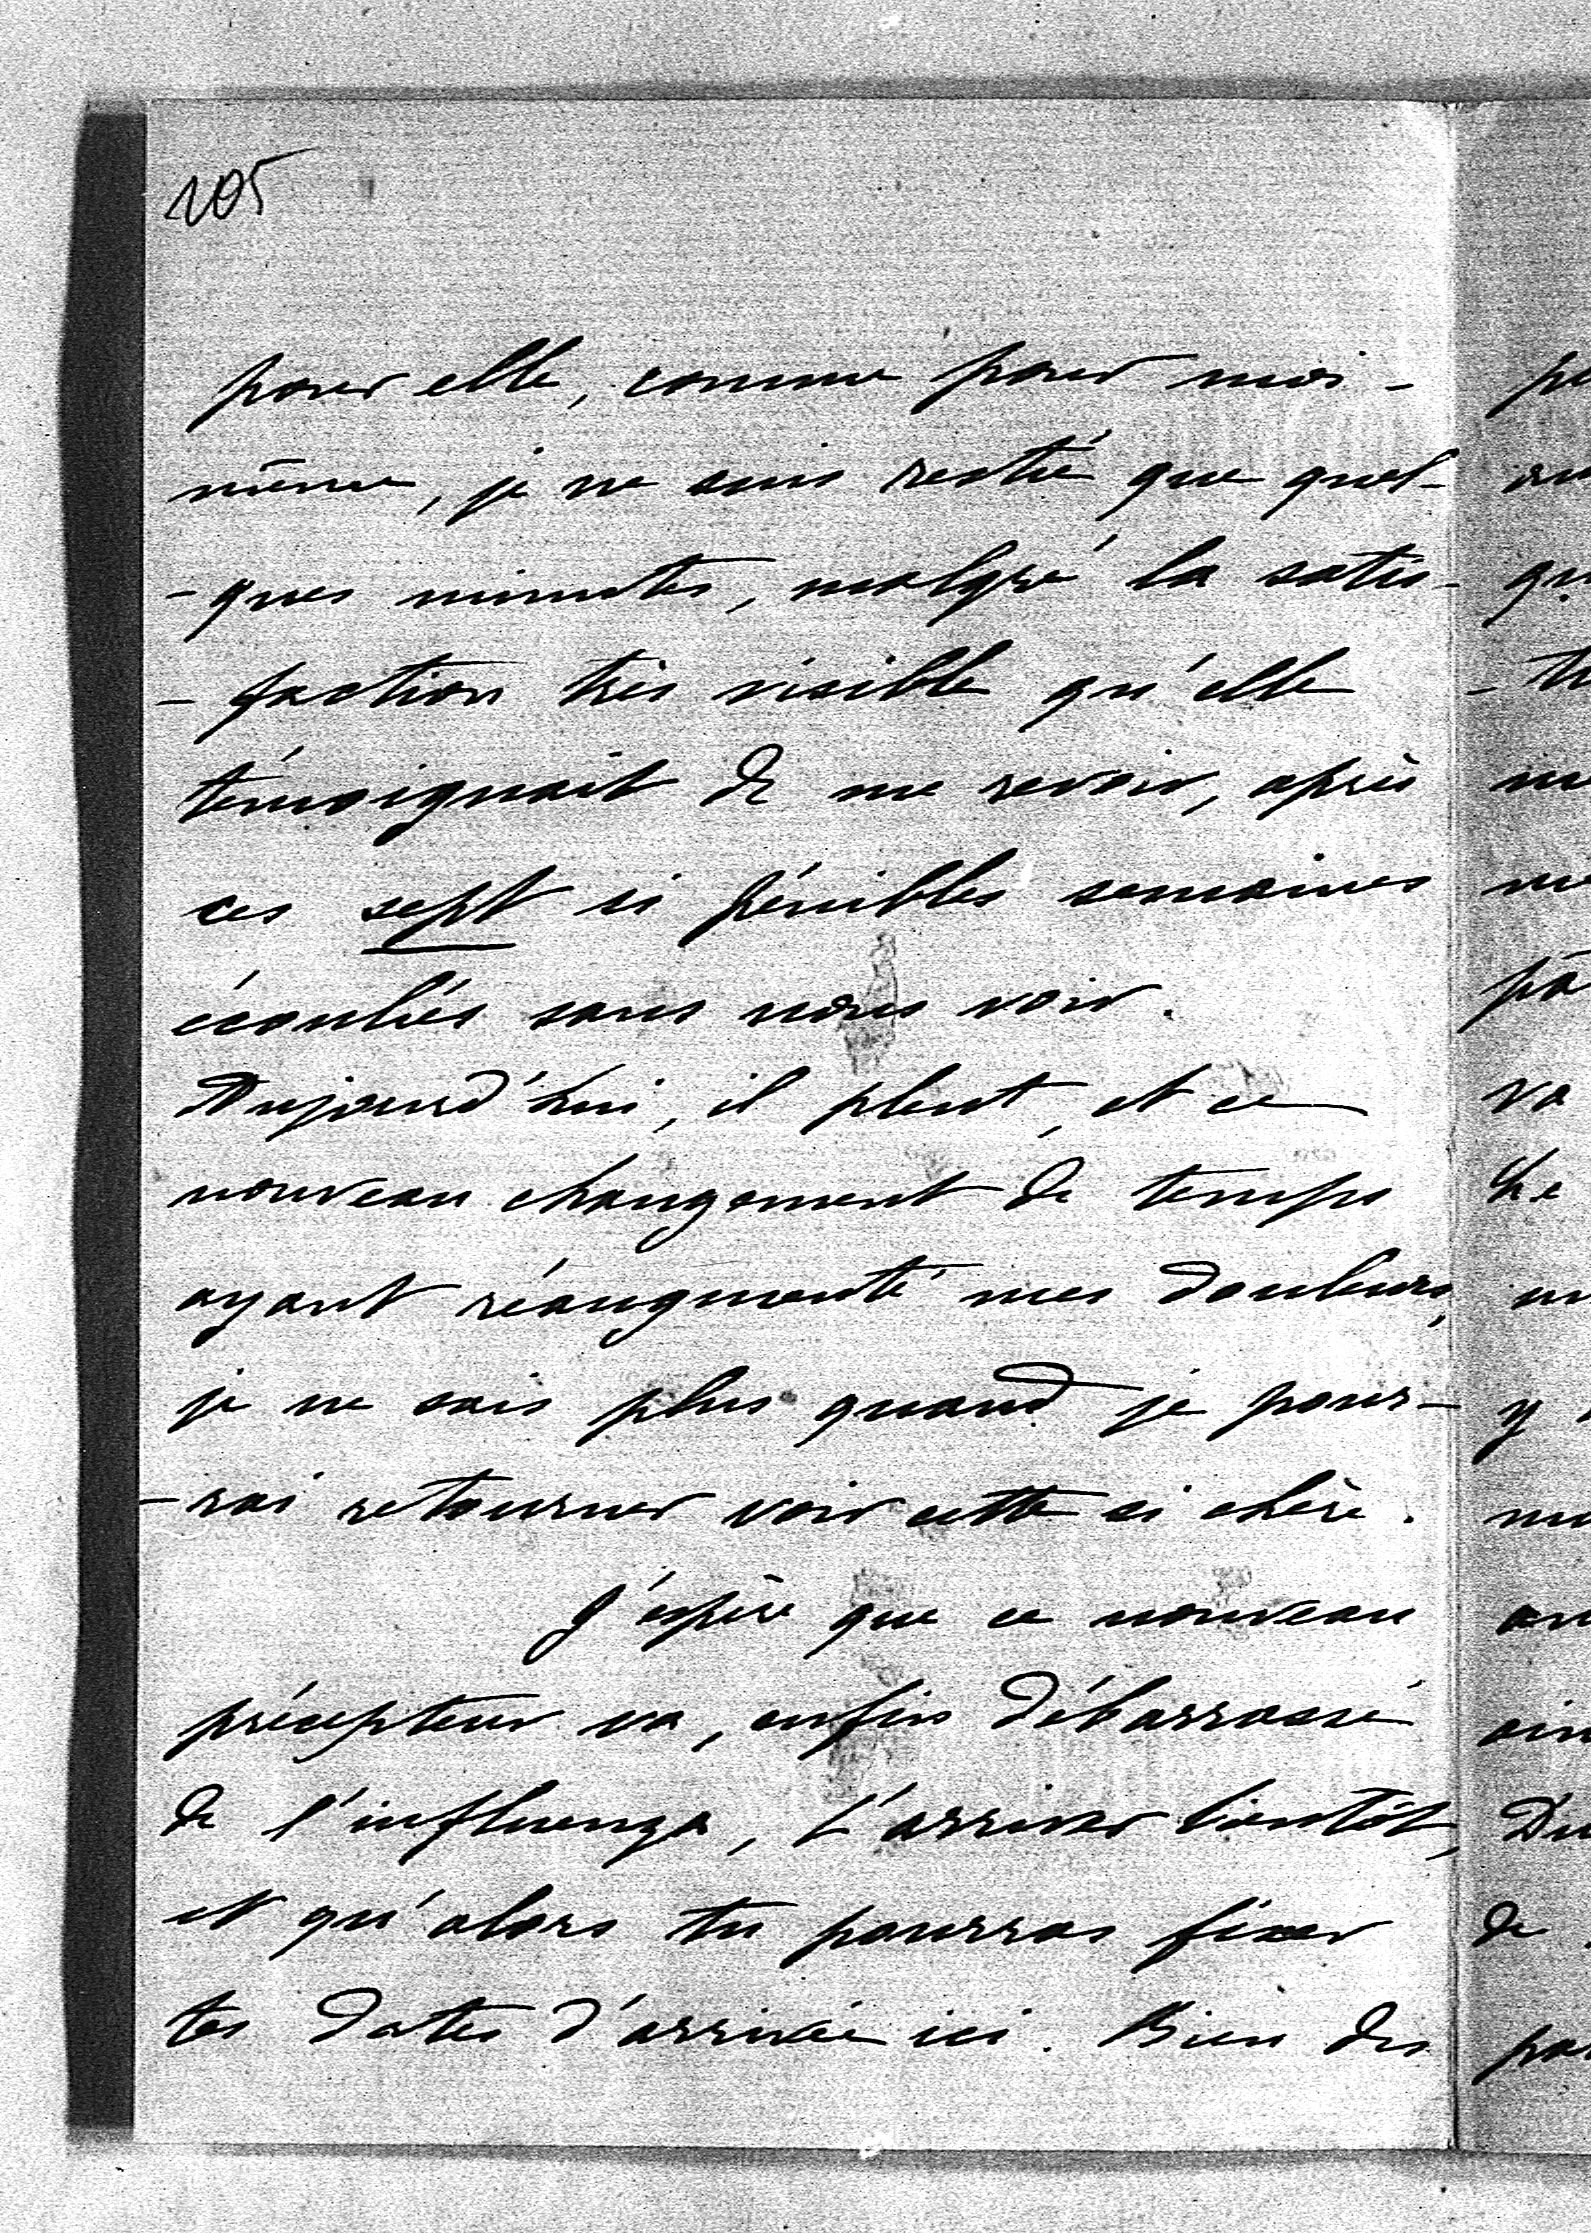 105
pour elle, comme pour moi-
même, je ne suis resté que quel-
-ques minutes, malgré la satis-
-faction très visible qu'elle
témoignait de me revoir, après
ces sept si pénibles semaines
écoulées sans nous voir.
Aujourd'hui, il pleut, et ce
nouveau changement de temps
ayant réaugmenté mes douleurs,
je ne sais plus quand je pour-
-rai retourner voir cette si chère.
J'espère que ce nouveau
précepteur va, enfin débarrassé
de l'influenza, t'arriver bientôt,
et qu'alors tu pourras fixer
tes dates d'arrivée ici. Bien des